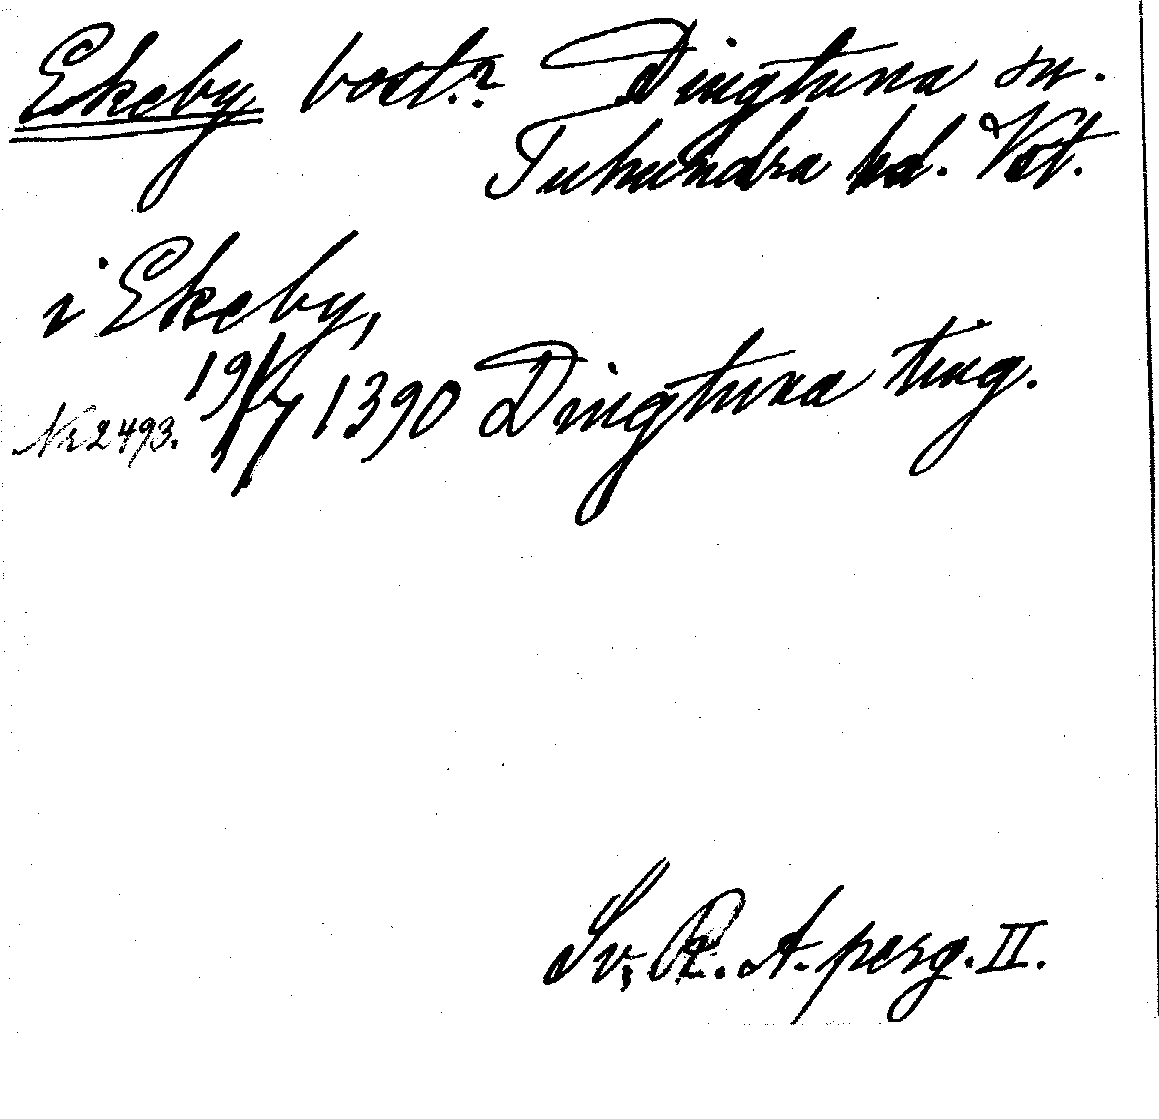 Ekeby bost.? Dingtuna sn.
Tuhundra hd. Vstm.
i Ekeby,
Nr 2493. 19/7 1390 Dingtuna ting.
Sv. R. A. perg. II.